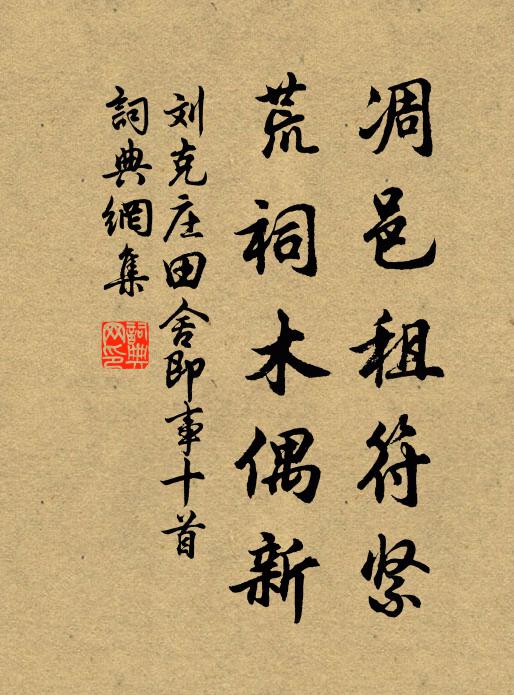 凋邑租符紧
荒祠木偶新
刘克庄田舍即事十首
詞典網集
詞典网印